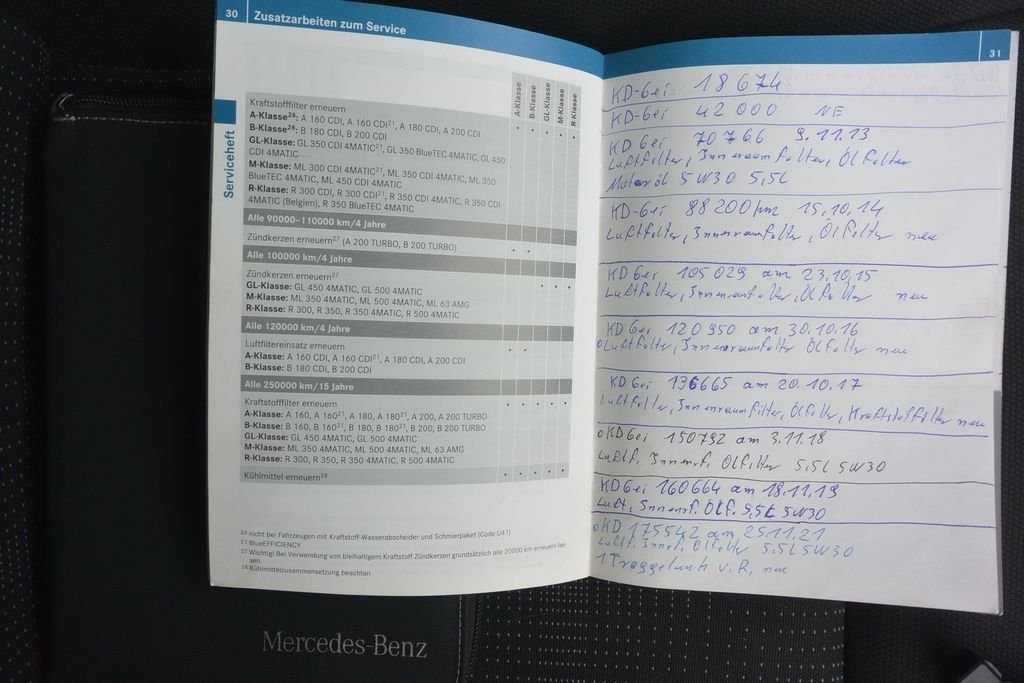 30 Zusatzarbeiten zum Service
Serviceheft
A-Klasse
B-Klasse
GL-Klasse
M-Klasse
R-Klasse
Kraftstofffilter erneuern
A-Klasse26: A 160 CDI, A 160 CDI21, A 180 CDI, A 200 CDI
B-Klasse26: B 180 CDI, B 200 CDI
GL-Klasse: GL 350 CDI 4MATIC21, GL 350 BlueTEC 4MATIC, GL 450
CDI 4MATIC
M-Klasse: ML 300 CDI 4MATIC21, ML 350 CDI 4MATIC, ML 350
BlueTEC 4MATIC, ML 450 CDI 4MATIC
R-Klasse: R 300 CDI, R 300 CDI21, R 350 CDI 4MATIC, R 350 CDI
4MATIC (Belgien), R 350 BlueTEC 4MATIC
Alle 90000–110000 km/4 Jahre
Zündkerzen erneuern27 (A 200 TURBO, B 200 TURBO)
Alle 100000 km/4 Jahre
Zündkerzen erneuern27
GL-Klasse: GL 450 4MATIC, GL 500 4MATIC
M-Klasse: ML 350 4MATIC, ML 500 4MATIC, ML 63 AMG
R-Klasse: R 300, R 350, R 350 4MATIC, R 500 4MATIC
Alle 120000 km/4 Jahre
Luftfiltereinsatz erneuern
A-Klasse: A 160 CDI, A 160 CDI21, A 180 CDI, A 200 CDI
B-Klasse: B 180 CDI, B 200 CDI
Alle 250000 km/15 Jahre
Kraftstofffilter erneuern
A-Klasse: A 160, A 16021, A 180, A 18021, A 200, A 200 TURBO
B-Klasse: B 160, B 16021, B 180, B 18021, B 200, B 200 TURBO
GL-Klasse: GL 450 4MATIC, GL 500 4MATIC
M-Klasse: ML 350 4MATIC, ML 500 4MATIC, ML 63 AMG
R-Klasse: R 300, R 350, R 350 4MATIC, R 500 4MATIC
Kühlmittel erneuern28
26 nicht bei Fahrzeugen mit Kraftstoff-Wasserabscheider und Schmierpaket (Code U41)
21 BlueEFFICIENCY
27 Wichtig! Bei Verwendung von bleihaltigem Kraftstoff Zündkerzen grundsätzlich alle 20000 km erneuern las-
sen.
28 Kühlmittelzusammensetzung beachten
31
KD-bei 18674
KD-bei 42 000 NE
KD bei 70766 9.11.13
Luftfilter, Innenraumfilter, Ölfilter
Motoröl 5W30 5,5L
KD-bei 88200km 15.10.14
Luftfilter, Innenraumfilter, Ölfilter neu
KD bei 105029 am 23.10.15
Luftfilter, Innenraumfilter, Ölfilter neu
KD bei 120950 am 30.10.16
Luftfilter, Innenraumfilter Ölfilter neu
KD bei 136665 am 20.10.17
Luftfilter, Innenraumfilter, Ölfilter, Kraftstoffilter neu
KD bei 150792 am 3.11.18
Luftf. Innenf. Ölfilter 5,5L 5W30
KD bei 160664 am 18.11.19
Luft, Innenf. Ölf. 5,5L 5W30
KD 175542 am 25.11.21
Luftf. Innenf. Ölfilter 5,5L 5W30
1 Traggelenk v.R. neu
Mercedes-Benz